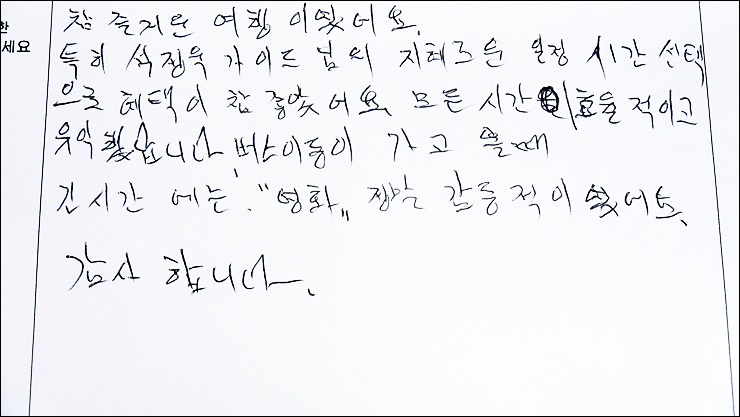 한
세요
참 즐거운 여행 이였어요.
특히 석정욱 가이드 님의 지혜로운 일정 시간 선택
으로 혜택이 참 좋았어요. 모든 시간이 효율적이고
유익했습니다 버스이동이 가고 올때
긴시간 에는. "영화" 정말 감동적이 였어요.
감사 합니다.